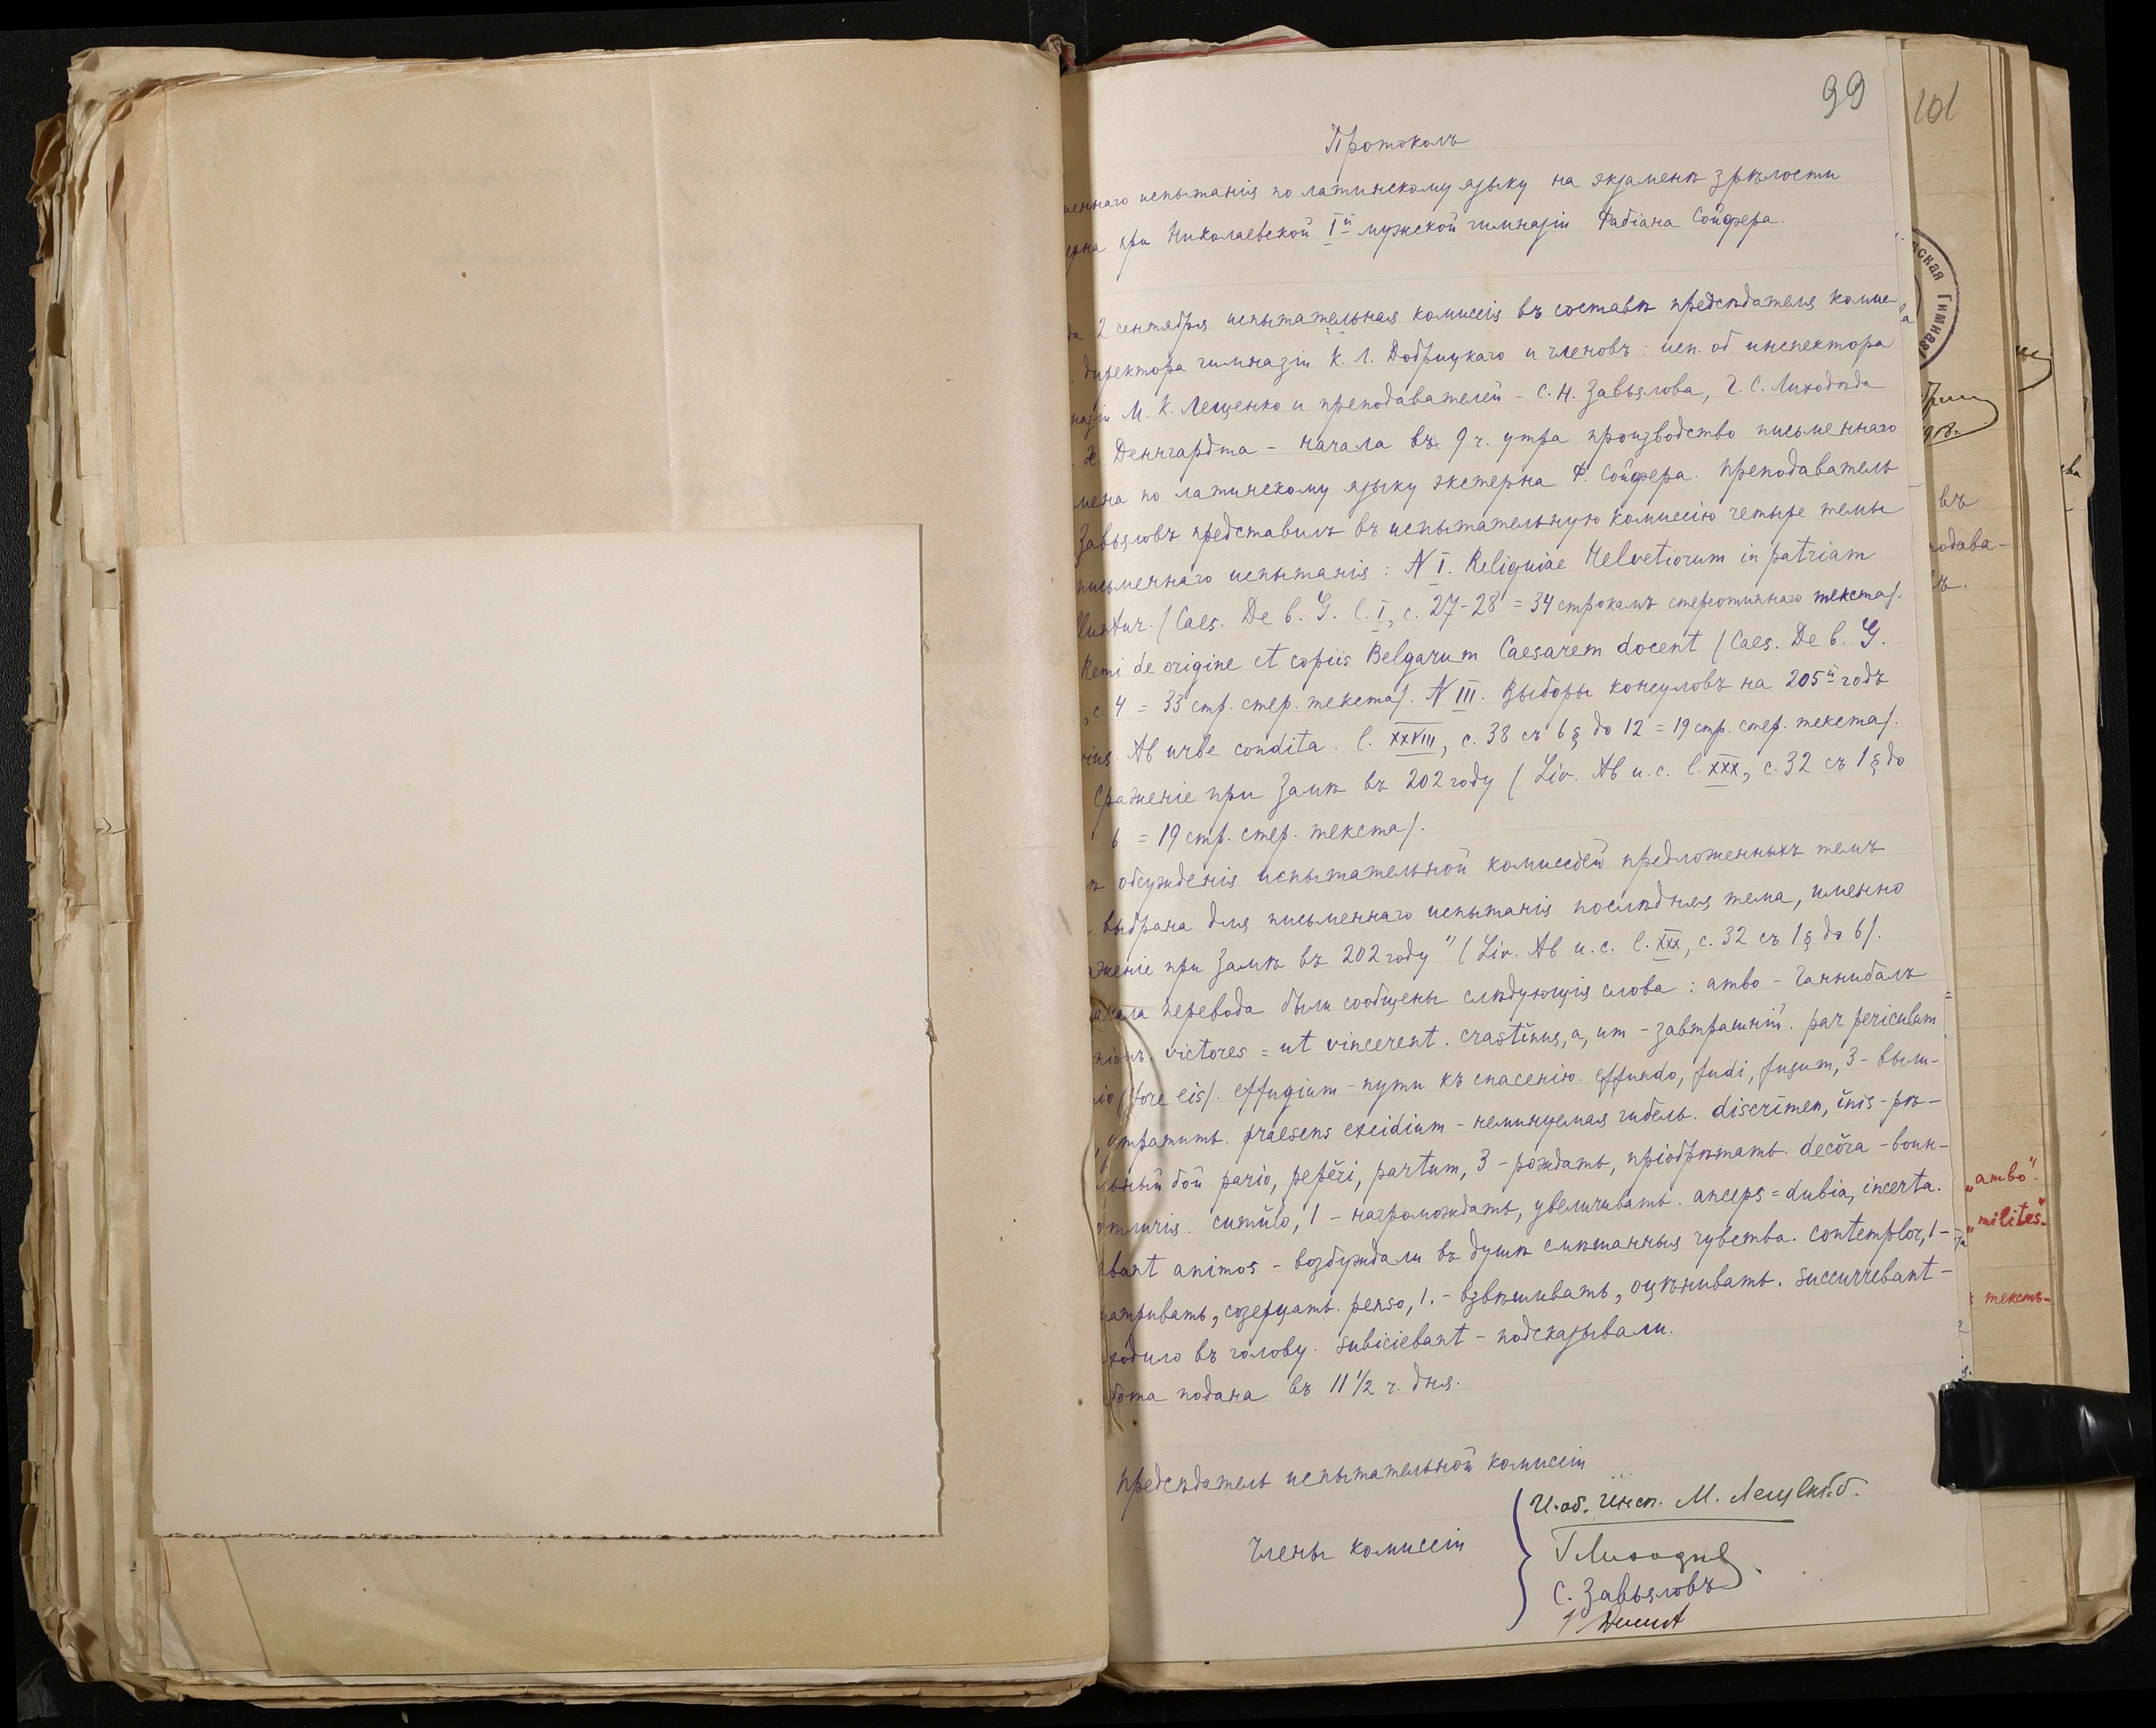 99
101
Протоколъ
испытанія по латинскому языку на экзаменѣ зрѣлости
при Николаевской I-й мужской гимназіи Фабіана Сойфера.
2 сентября испытательная комиссія въ составѣ предсѣдателя комис-
директора гимназіи К. Л. Добрицкаго и членовъ: исп. об. инспектора
М. К. Лещенко и преподавателей - С. Н. Завьялова, Г. С. Лиходѣда
Денгардта - начала въ 9 ч. утра производство письменнаго
по латинскому языку экстерна Ф. Сойфера. Преподаватель
Завьяловъ представилъ въ испытательную комиссію четыре темы
письменнаго испытанія: N I. Reliquiae Helvetiorum in patriam
(Caes. De b. G. l. I, c. 27-28 = 34 строкамъ стереотипнаго текста).
Remi de origine et copiis Belgarum Caesarem docent (Caes. De b. G.
c. 4 = 33 стр. стер. текста). N III. Выборы консуловъ на 205й годъ
Ab urbe condita. l. XXVIII, c. 38 съ 6 § до 12 = 19 стр. стер. текста).
Сраженіе при Замѣ въ 202 году (Liv. Ab u. c. l. XXX, c. 32 съ 1 § до
6 = 19 стр. стер. текста).
обсужденія испытательной комиссіей предложенныхъ темъ
выбрана для письменнаго испытанія послѣдняя тема, именно
при Замѣ въ 202 году" (Liv. Ab u. c. l. XXX, c. 32 съ 1 § до 6).
перевода были сообщены слѣдующія слова: ambo - Ганнибалъ
victores = ut vincerent. crastĭnus, a, um - завтрашній. par periculum
(fore eis). effugium - пути къ спасенію. effundo, fudi, fusum, 3 - выли-
praesens excidium - неминуемая гибель. discrīmen, ĭnis - рѣ-
бой pario, pepĕri, partum, 3 - рождать, пріобрѣтать. decŏra - воин-
cumŭlo, 1 - нагромождать, увеличивать. anceps = dubia, incerta.
animos - возбуждали въ душѣ смѣшанныя чувства. contemplor, 1 -
созерцать. penso, 1. - взвѣшивать, оцѣнивать. succurrebant -
въ голову. subiciebant - подсказывали.
подана въ 11 1/2 ч. дня.
Предсѣдатель испытательной комиссіи
Члены комиссіи
И. об. инсп. М. Лещенко.
С. Завьяловъ
ская Гимназі
въ
подава-
„ambo".
„milites".
текстъ-